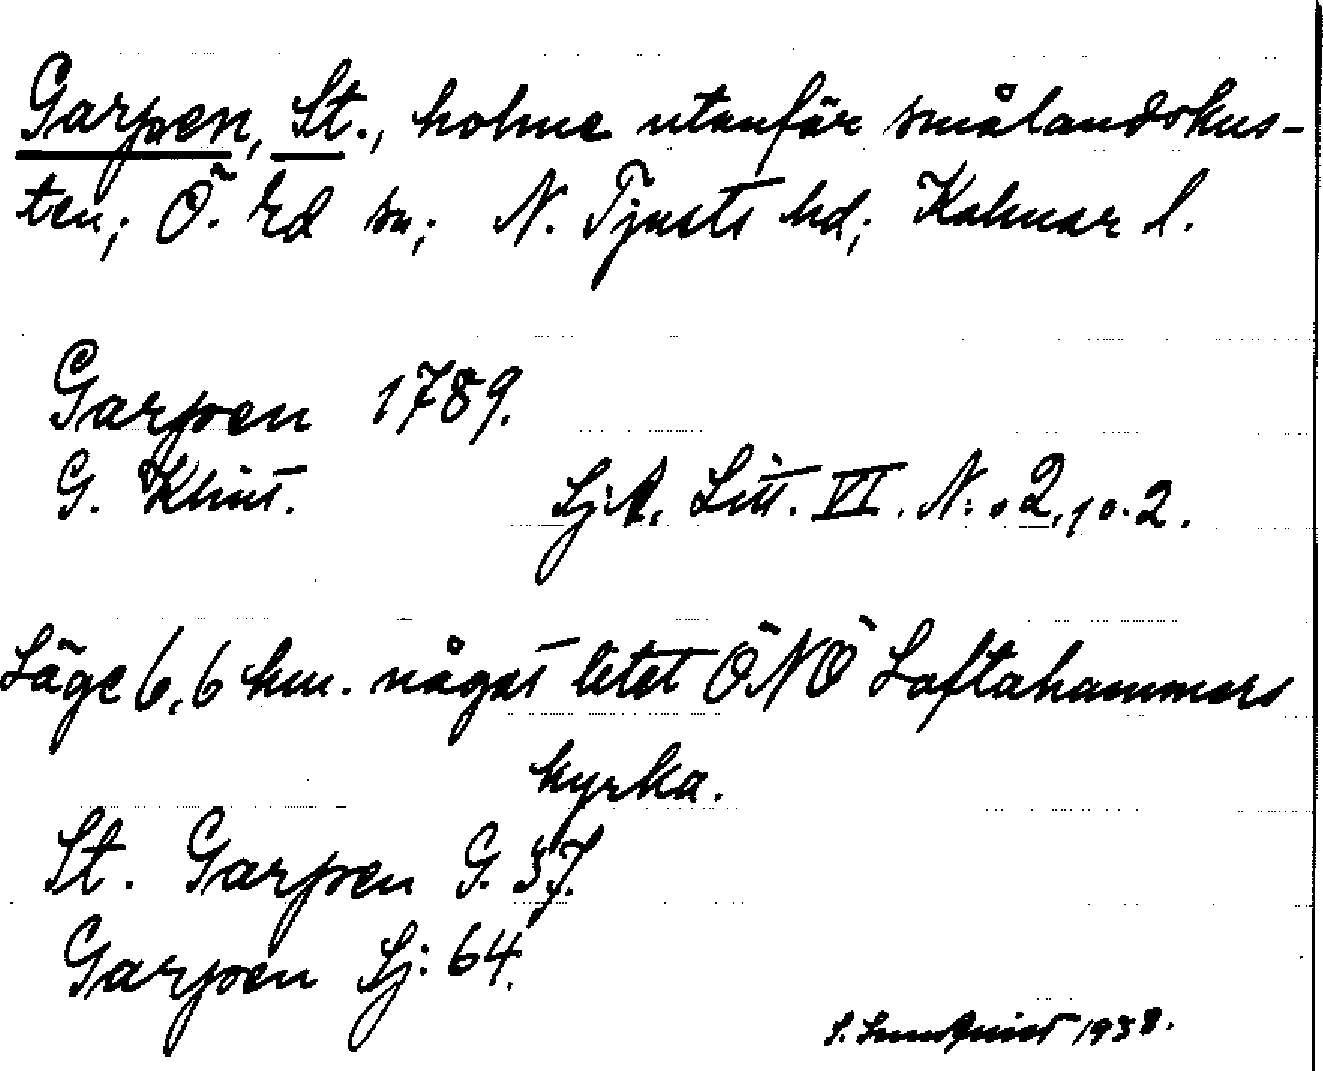 Garpen, St., holme utanför smålandskus-
ten; Ö. Ed sn; N. Tjusts hd; Kalmar l.
Garpen 1789.
G. Klint. Sj.A. Litt. VI. N:o 2, 10.2.
Läge 6,6 km. något litet ÖNÖ Loftahammars
kyrka.
St. Garpen G. 37.
Garpen Sj: 64.
S. Lundquist 1938.